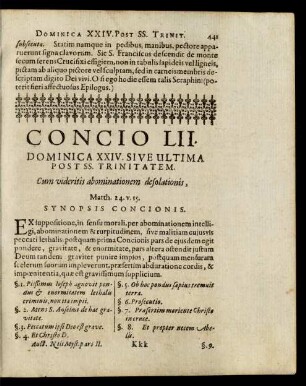 DOMINICA XXIV. POST SS. TRINIT. 441
subsistente. Statim namque in pedibus, manibus, pectore appa-
ruerunt signa clavorum. Sic S. Franciscus descendit de monte
secum ferens Crucifixi effigiem, non in tabulis lapideis vel ligneis,
pictam ab aliquo pictore vel sculptam, sed in carneis membris de-
scriptam digito Dei vivi. O si ego hodie essem talis Seraphin! (po-
terit fieri affectuosus Epilogus.)
CONCIO LII.
DOMINICA XXIV. SIVE ULTIMA
POST SS. TRINITATEM.
Cum videritis abominationem desolationis,
Matth. 24. v. 15.
SYNOPSIS CONCIONIS.
EX suppositione, in sensu morali, per abominationem intelli-
gi, abominationem & turpitudinem, sive malitiam cujusvis
peccati lethalis: postquam prima Concionis pars de ejusdem egit
pondere, gravitate, & enormitate, pars altera ostendit justum
Deum tandem graviter punire impios, postquam mensuram
scelerum suorum impleverunt: præsertim ob durationem cordis, &
impœnitentia, quæ est gravissimum supplicium.
§. 1. Piissimus Joseph agnovit pon-
dus & enormitatem lethalis
criminis, non ita impii.
§. 2. Mens S. Anselmi de hac gra-
vitate.
§. 3. Peccatum ipsi Deo est grave.
§. 4. Et Christo D.
§. 5. Ob hoc pondus sæpius tremuit
terra.
§. 6. Prosecutio.
§. 7. Præsertim moriente Christo
in cruce.
§. 8. Et propter necem Abe-
lis.
Auct. Myst. pars II. Kkk §. 9.